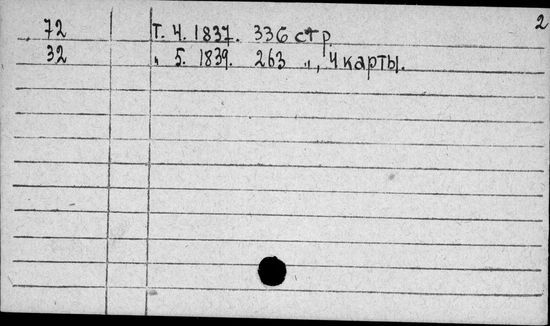 2
72 Т. 4. 1837. 336 стр.
32 " 5. 1839. 263 ", 4 карты.